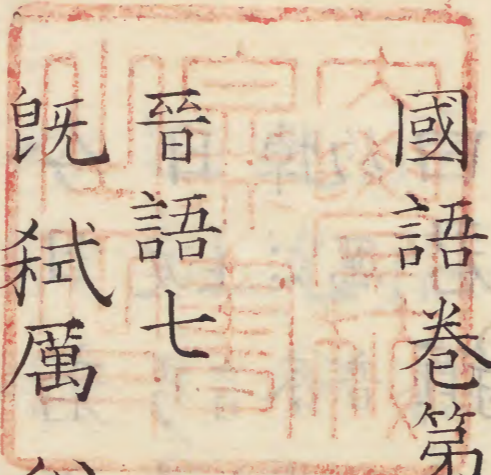 國語卷第
晉語七
既弑厲